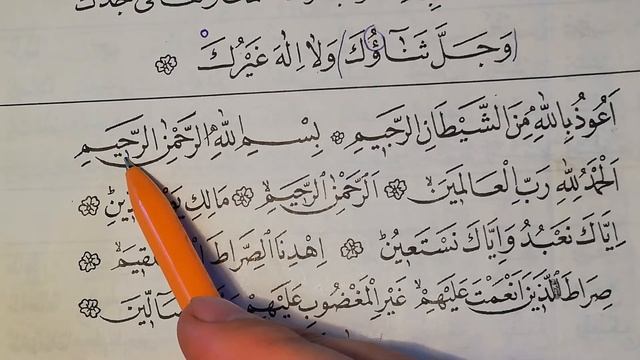 (وَجَلَّ ثَنَاۤؤُكَ) وَلَا اِلٰهَ غَيْرُكَ
اَعُوذُ بِاللّٰهِ مِنَ الشَّيْطَانِ الرَّجِيمِ بِسْــمِ اللّٰهِ الرَّحْمٰنِ الرَّحِيمِ
اَلْحَمْدُ لِلّٰهِ رَبِّ الْعَالَمِينَ اَلرَّحْمٰنِ الرَّحِيمِ مَالِكِ
اِيَّاكَ نَعْبُدُ وَاِيَّاكَ نَسْتَعِينُ اِهْدِنَا الصِّرَاطَ
صِرَاطَ الَّذِينَ اَنْعَمْتَ عَلَيْهِمْ غَيْرِ الْمَغْضُوبِ عَلَيْهِمْ